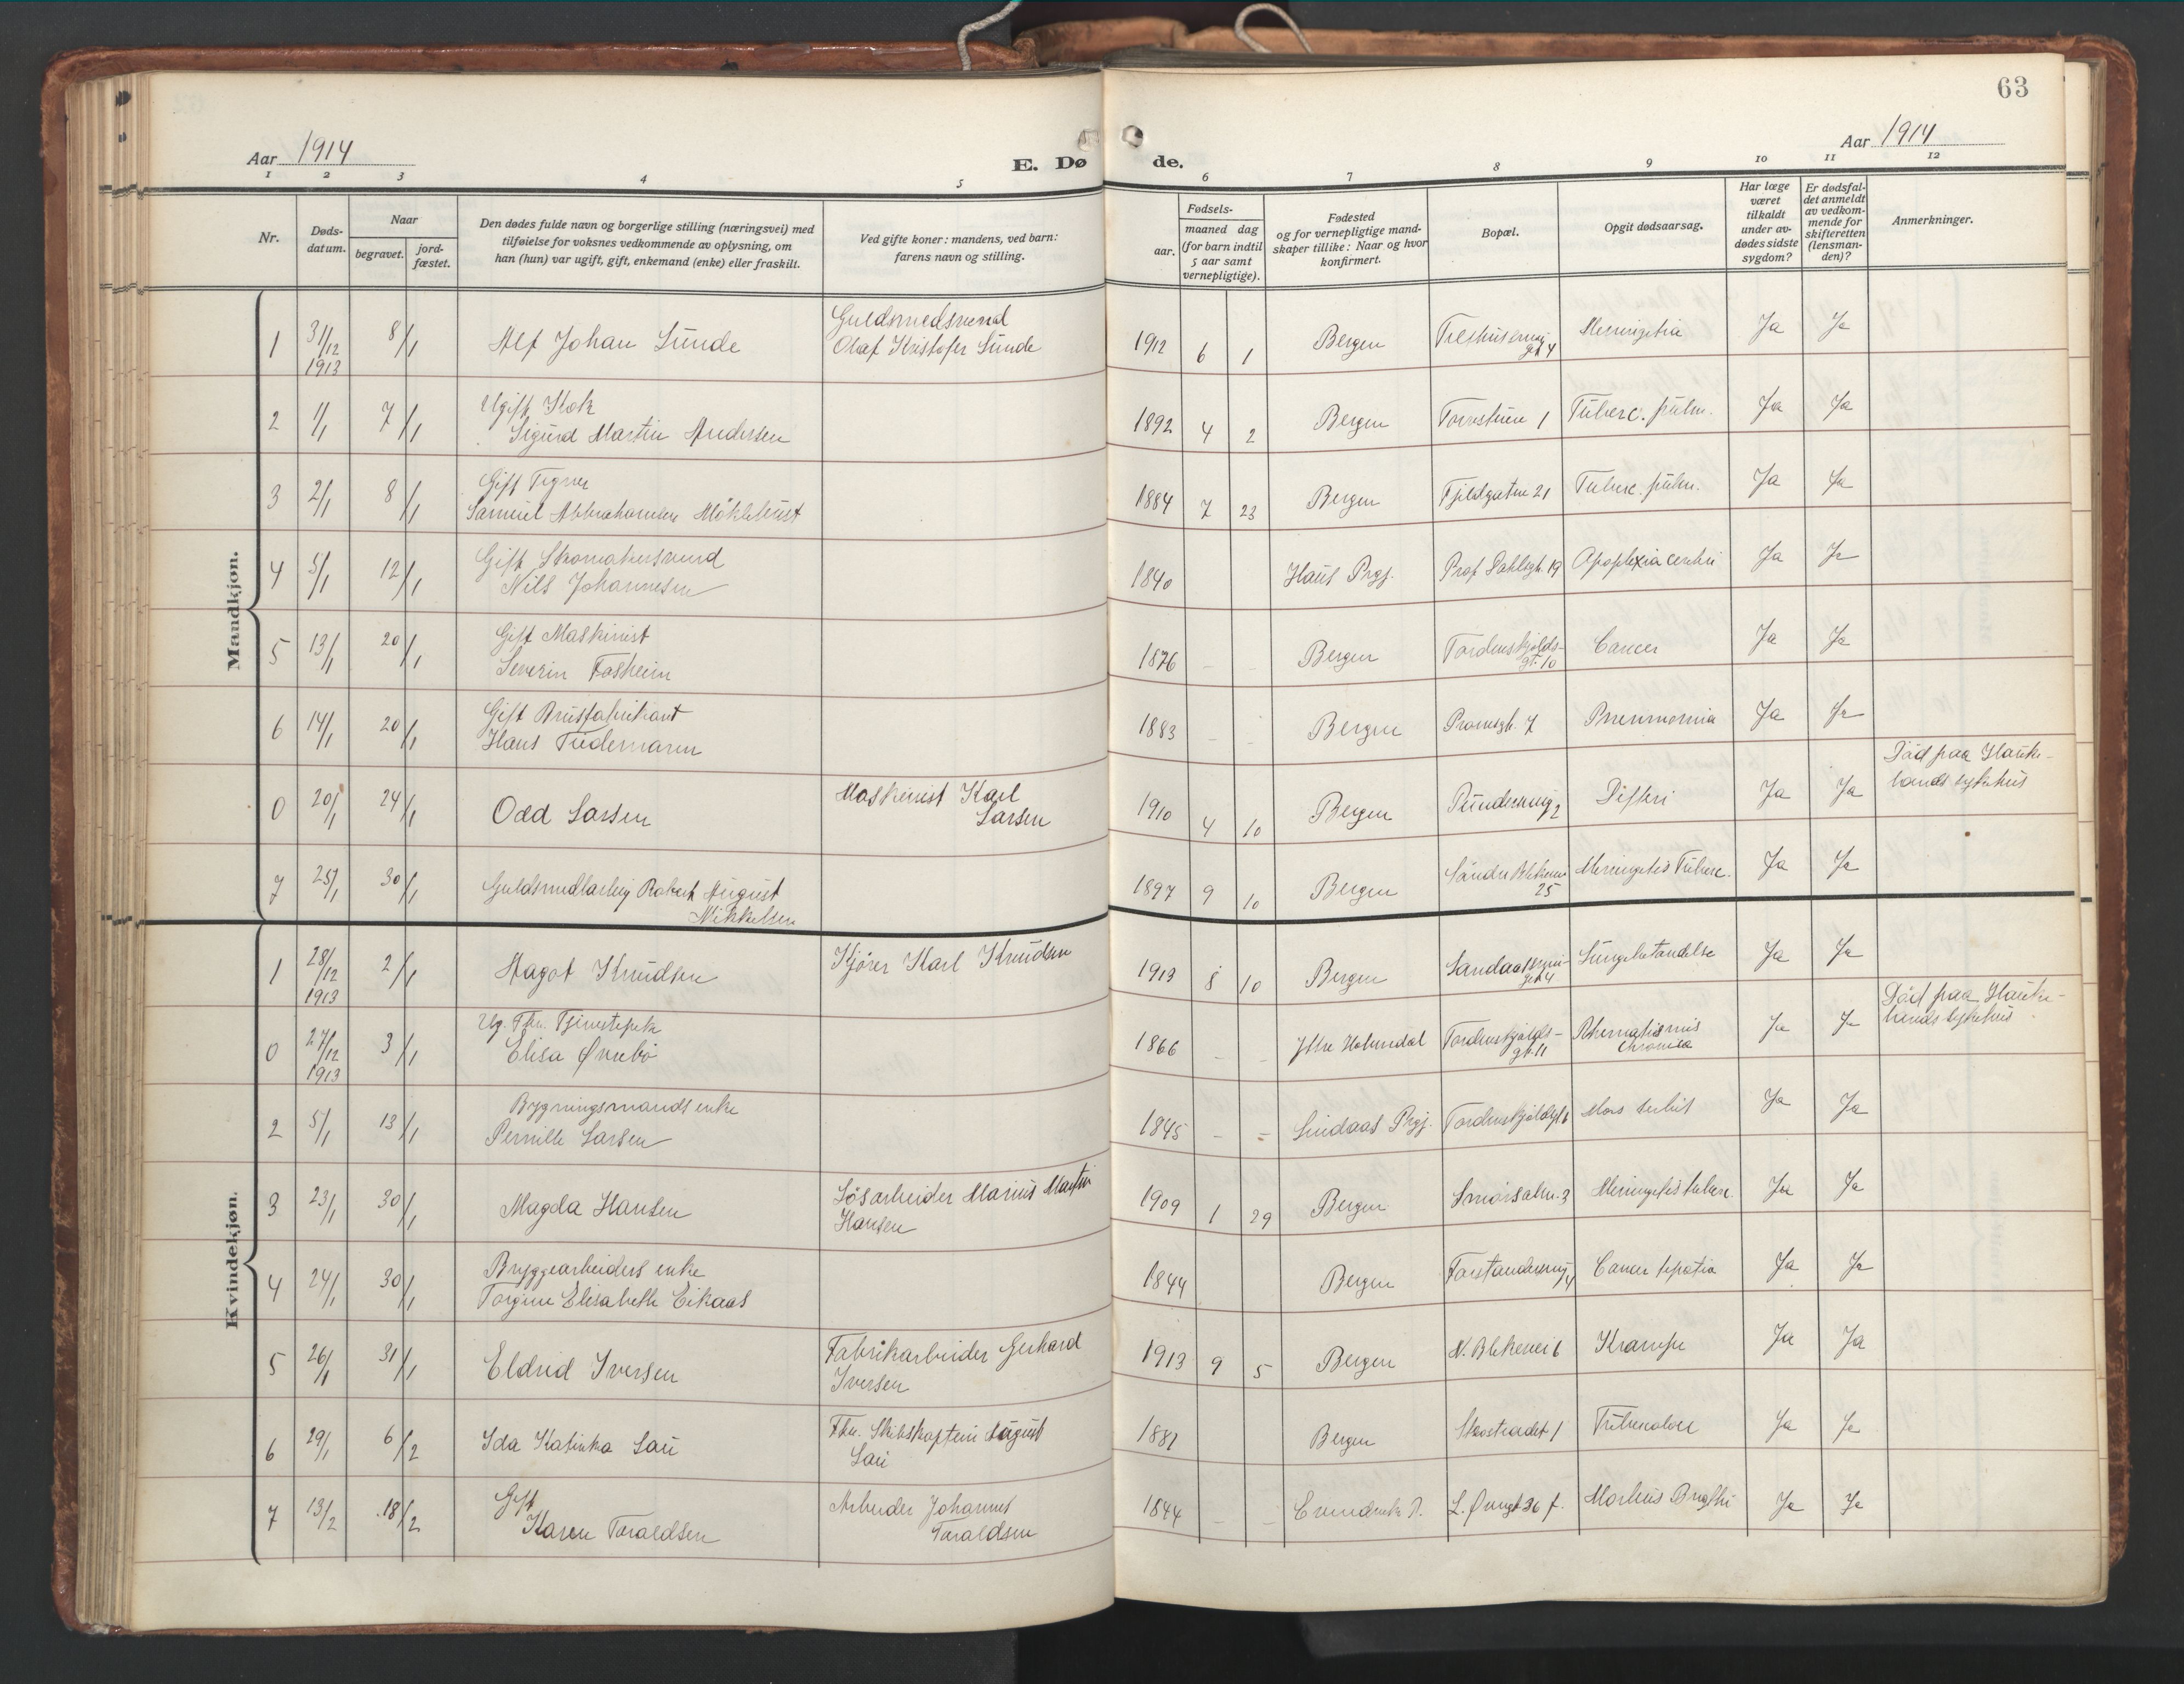 63
Aar 1914
E. Dø de.
Aar 1914
1 2 3 4 5 6 7 8 9 10 11 12
Nr.
Døds-
datum.
Naar
begravet.
jord-
fæstet.
Den dødes fulde navn og borgerlige stilling (næringsvei) med
tilføielse for voksnes vedkommende av oplysning, om
han (hun) var ugift, gift, enkemand (enke) eller fraskilt.
Ved gifte koner: mandens, ved barn:
farens navn og stilling.
Fødsels-
aar.
maaned dag
(for barn indtil
5 aar samt
vernepligtige).
Fødested
og for vernepligtige mand-
skaper tillike: Naar og hvor
konfirmert.
Bopæl.
Opgit dødsaarsag.
Har læge
været
tilkaldt
under av-
dødes sidste
sygdom?
Er dødsfal-
det anmeldt
av vedkom-
mende for
skifteretten
(lensman-
den)?
Anmerkninger.
Mandkjøn.
1 31/12 1913 8/1 Alf Johan Sunde
Guldsmedsvend
Olaf Kristofer Sunde
1912 6 1 Bergen 4 Meningitis Ja Ja
2 1/1 7/1 Ugift Kok
Sigurd Martin Andersen
1892 4 2 Bergen 1 Tuberc. pulm. Ja Ja
3 2/1 8/1 Gift Tegner
Samuel Abbrahamsen Møklebust
1884 7 23 Bergen Fjeldgaten 21 Tuberc. pulm. Ja Ja
4 5/1 12/1 Gift Skomakersvend
Nils Johannesen
1840 Haus Prgj. Prof. Dahlsgt. 19 Apoplexia cerebri Ja Ja
5 13/1 20/1 Gift Maskinist
Severin Fosheim
1876 – – Bergen Tordenskjolds-
gt. 10 Cancer Ja Ja
6 14/1 20/1 Gift Brusfabrikant
Hans Tiedemann
1883 – – Bergen 7 Pneumonia Ja Ja
0 20/1 24/1 Odd Larsen
Maskinist Karl
Larsen
1910 4 10 Bergen 2 Difteri Ja Ja
Død paa Hauke-
lands sykehus
7 25/1 30/1 Guldsmedlærling Robert August
Mikkelsen
1897 9 10 Bergen Søndre Blekevei
25 Meningitis Tuberc. Ja Ja
Kvindekjøn.
1 28/12 1913 2/1 Hagot Knudsen
Kjører Karl Knudsen
1913 8 10 Bergen 4 Lungebetændelse Ja Ja
0 27/12 1913 3/1 Ug. Fhv. Tjenestepike
Elisa Øvrebø
1866 – – Ytre Holmedal Tordenskjolds-
gt. 11 Rheumatismus
chronica Ja Ja
Død paa Hauke-
lands sykehus
2 5/1 13/1 Bygningsmands enke
Pernille Larsen
1845 – – Lindaas Prgj. Tordenskjoldsgt. 6 Mors subit Ja Ja
3 23/1 30/1 Magda Hansen
Løsarbeider Marius Martin
Hansen
1909 1 29 Bergen Smørsalm. 3 Meningitis tuberc. Ja Ja
4 24/1 30/1 Bryggearbeiders enke
Torgine Elisabeth Eikaas
1844 Bergen 4 Cancer hepatis Ja Ja
5 26/1 31/1 Eldrid Iversen
Fabrikarbeider Gerhard
Iversen
1913 9 5 Bergen N. Blekevei 6 Krampe Ja Ja
6 29/1 6/2 Ida Katinka Lau
Fhv. Skibskaptein August
Lau
1887 Bergen Skostrædet 1 Tuberculose Ja Ja
7 13/2 18/2 Gift
Karen Toraldsen
Arbeider Johannes
Toraldsen
1844 – – L. Øvregt. 36 Morbus Brigthi Ja Ja